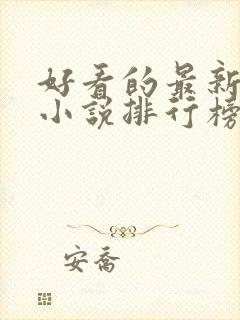 好看的最新
小说排行榜
安乔